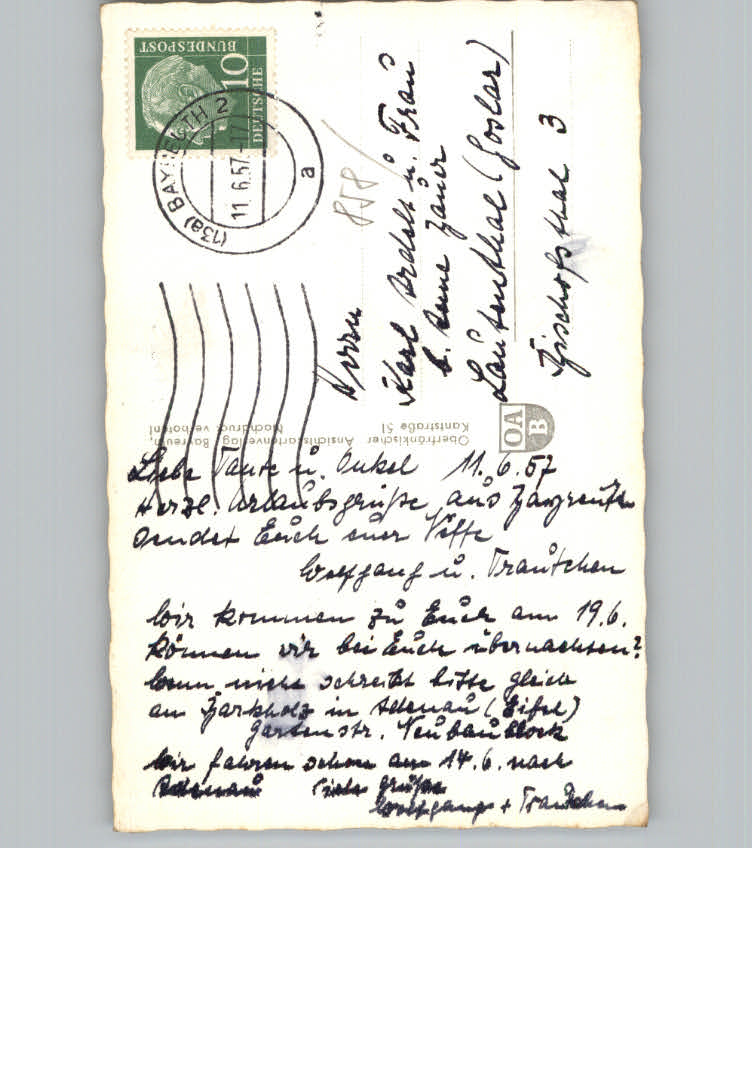 DEUTSCHE
BUNDESPOST
10
(13a) BAYREUTH 2
11.6.57.-17
a
858
Herrn
Karl u. Frau
b. Anna
Lautenthal (Goslar)
Bischofsthal 3
OA
B
Oberfränkischer Ansichtskartenverlag, Bayreuth,
Kantstraße 51 Nachdruck verboten!
Liebe Tante u. Onkel 11.6.57
Herzl. Urlaubsgrüße aus Bayreuth
sendet Euch euer Neffe
Wolfgang u. Trautchen
Wir kommen zu Euch am 19.6.
können wir bei Euch übernachten?
Wenn nicht schreibt bitte gleich
an Barkholz in Adenau (Eifel)
Gartenstr. Neubaublock
Wir fahren schon am 14.6. nach
Adenau Viele Grüße
Wolfgang + Trautchen